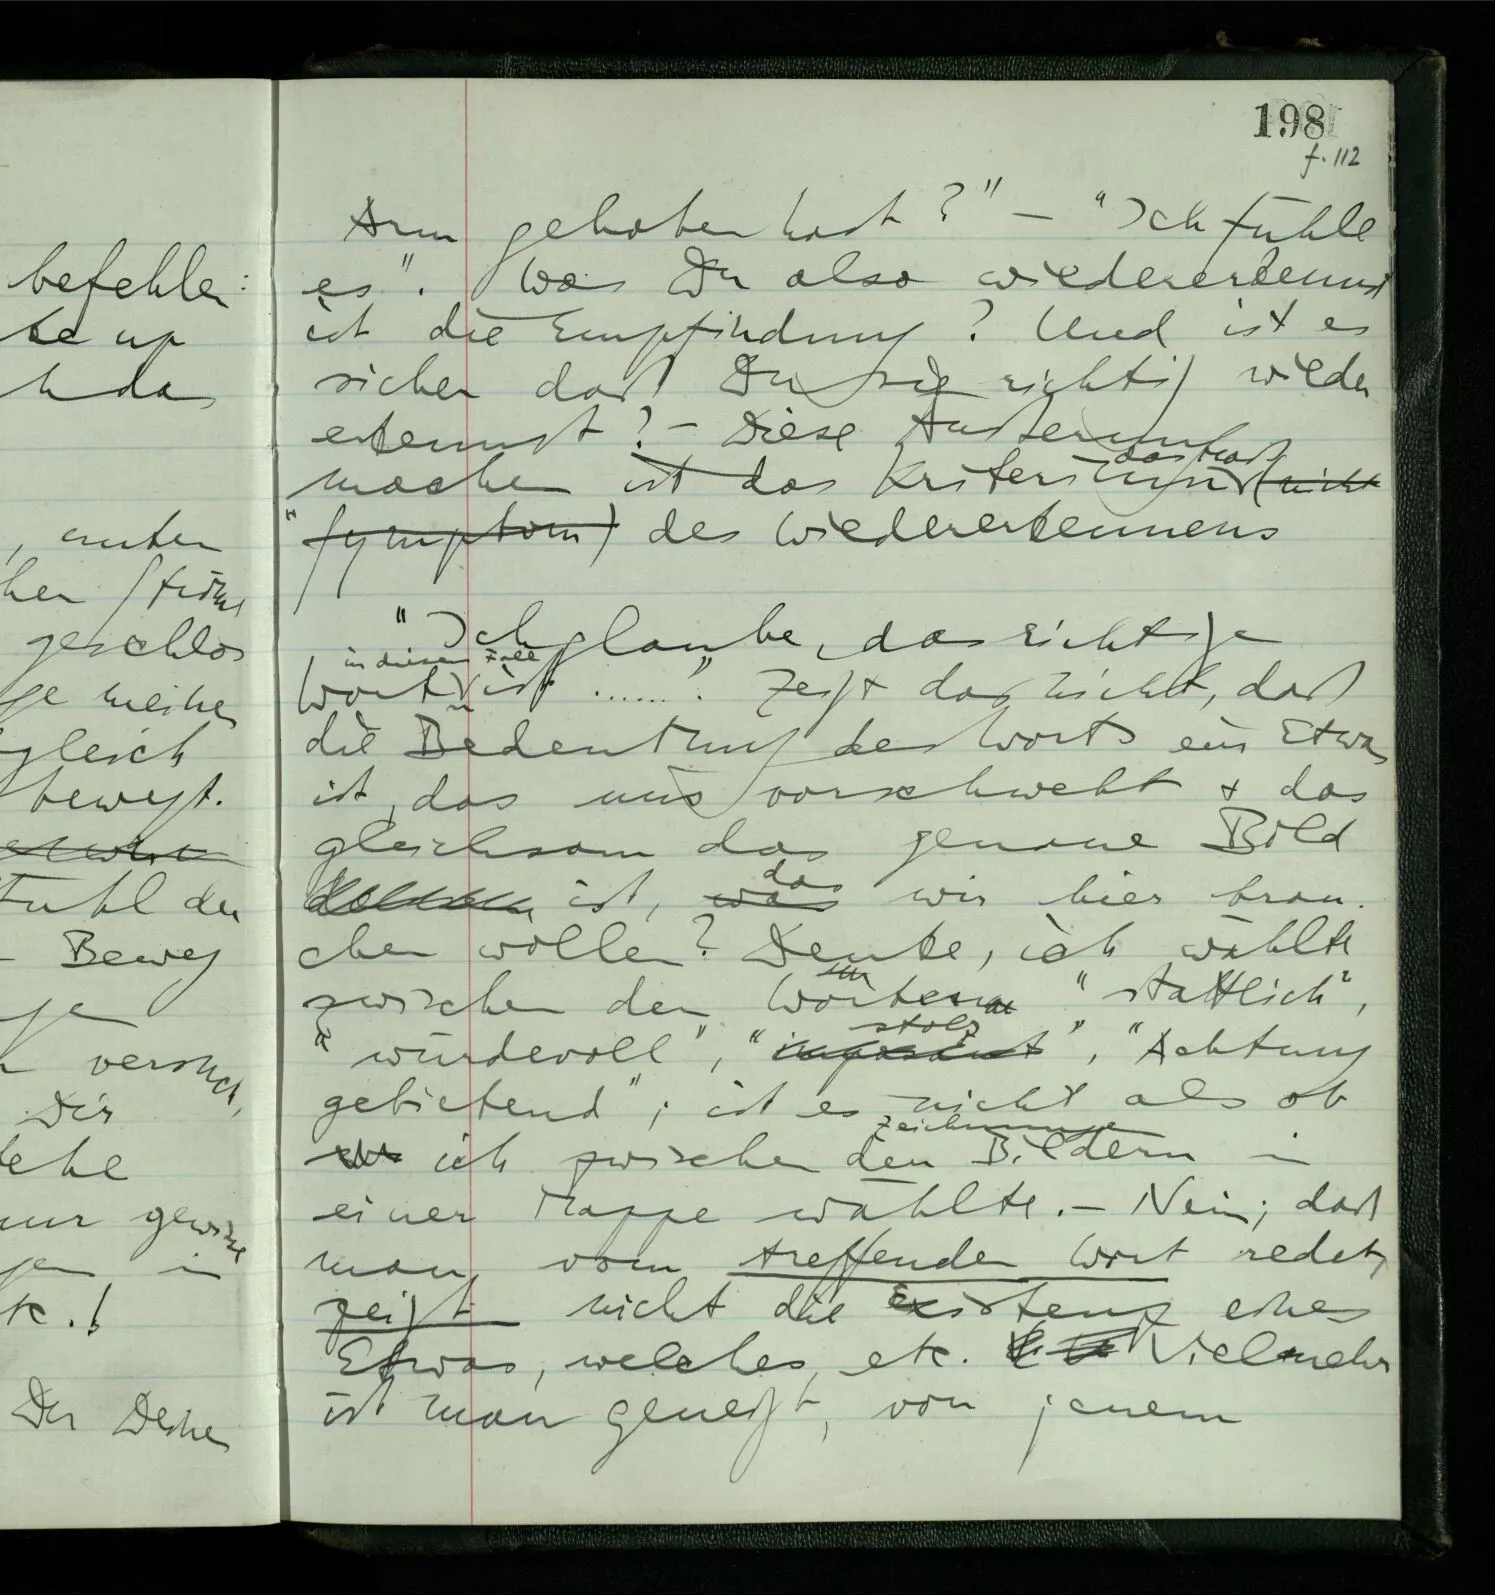 befehlen:
be up
h das
, unter
geschlos
ge meiner
gleich
bewegt.
Stuhl der
– Beweg
ge
n versuch,
Dir
stehe
nur gewisse
gen in
etc.!
Der Deine
198
f. 112
Arm gehoben hast?" – "Ich fühle
es". Was Du also wiedererkennst
ist die Empfindung? Und ist es
sicher daß Du sie richtig wieder
erkennst? – Diese Äußerung
machen ist das Kriterium (nicht
das Maß
Symptom) des Wiedererkennens
"Ich glaube, das richtige
in diesem Fall
Wort ist ......". Zeigt das nicht, daß
die Bedeutung des Worts ein Etwas
ist, das uns vorschwebt & das
gleichsam das genaue Bild
ist, was wir hier brau-
das
chen wollen? Denke, ich wählte
zwischen den Wörtern "stattlich",
"würdevoll", "imposant", "Achtung
stolz
gebietend"; ist es nicht als ob
ich zwischen den Bildern in
Zeichnungen
einer Mappe wählte. – Nein; daß
man vom treffenden Wort redet,
zeigt nicht die Existenz eines
Etwas, welches, etc. Vielmehr
ist man geneigt, von jenem